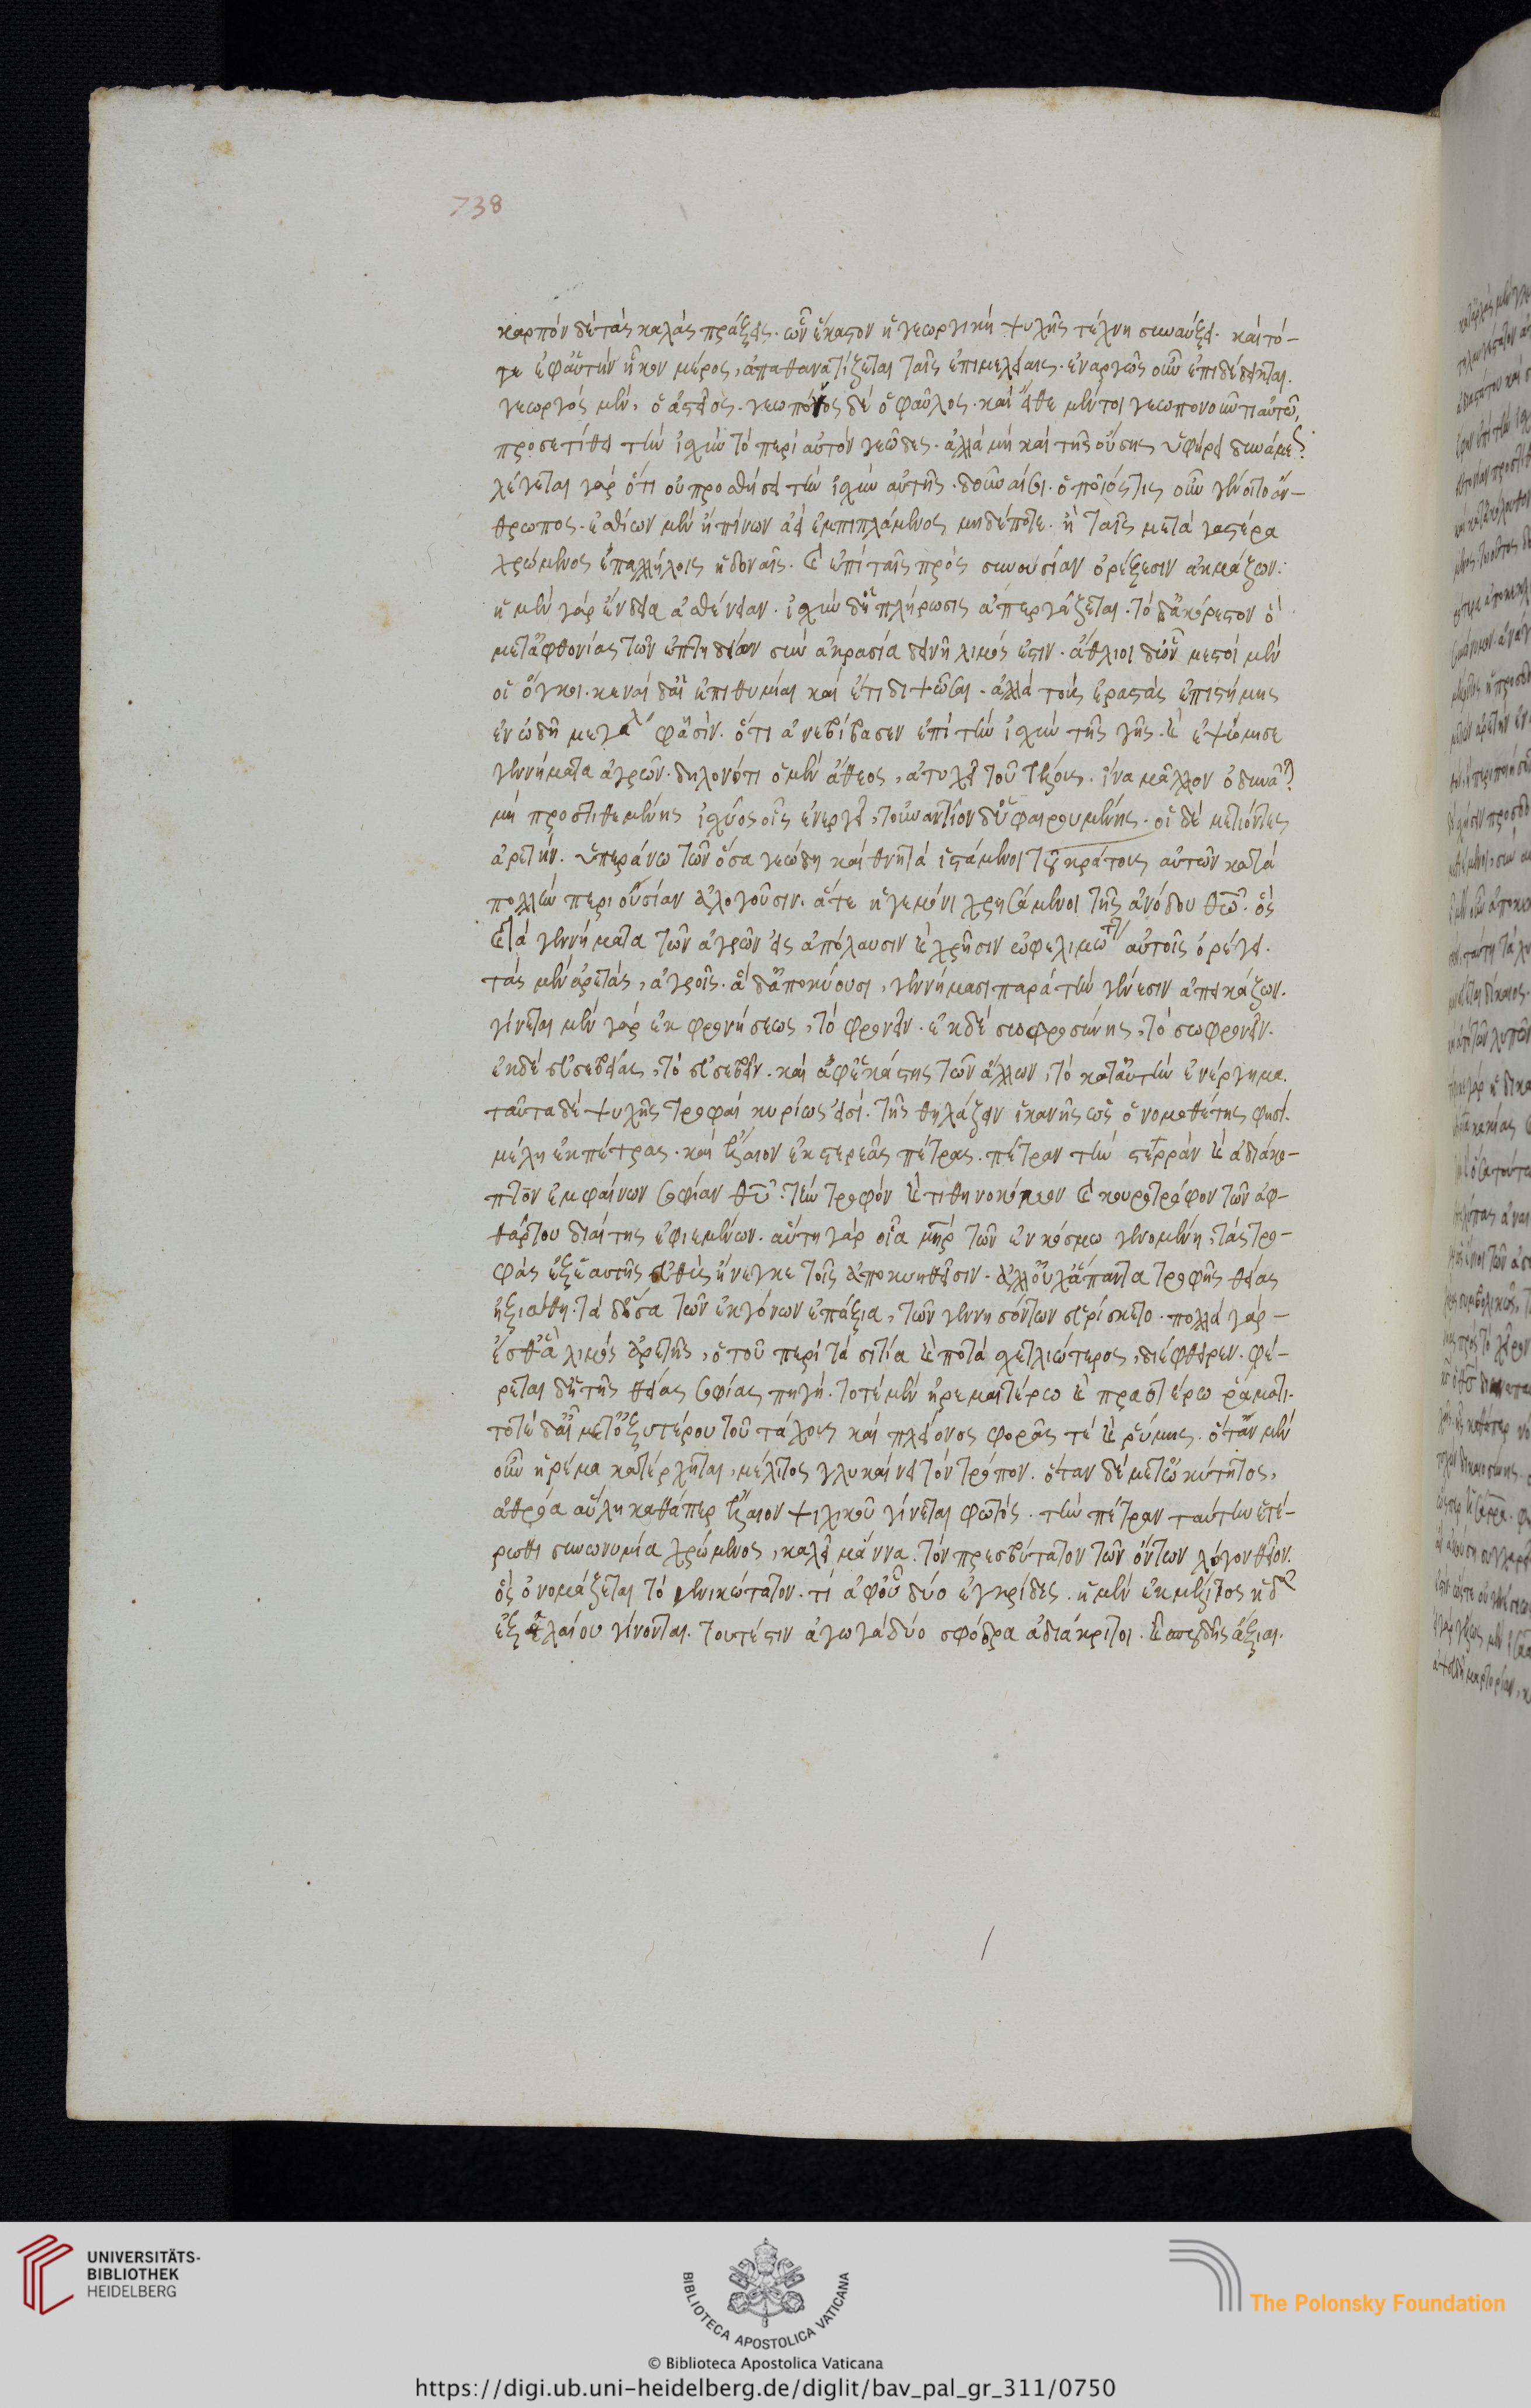 738
καρπὸν δὲ τὰς καλὰς πράξεις. ὧν ἕκαστον ἡ γεωργικὴ ψυχῆς τέχνη συναύξει. καὶ τό-
γε ἐφ' αὑτὴν ἧκον μέρος, ἀπαθανατίζεται ταῖς ἐπιμελείαις. ἐναργῶς οὖν ἐπιδέδεικται.
γεωργὸς μὲν, ὁ ἀστεῖος. γεωπόνος δὲ ὁ φαῦλος. καὶ εἴθε μέντοι γεωπονοῦντι αὐτῷ,
προσετίθει τὴν ἰσχὺν τὸ περὶ αὐτὸν γεῶδες. ἀλλὰ μὴ καὶ τῆς οὔσης ὑφήρει δυνάμεως.
λέγεται γὰρ ὅτι οὐ προσθήσει τὴν ἰσχὺν αὐτῆς. δοῦναί σοι. ὁποῖός τις οὖν γένοιτο ἄν-
θρωπος. ἐσθίων μὲν ἢ πίνων ἀεὶ ἐμπιπλάμενος μηδέποτε. ἢ ταῖς μετὰ γαστέρα
χρώμενος ἐπαλλήλοις ἡδοναῖς. καὶ ἐπὶ ταῖς πρὸς συνουσίαν ὀρέξεσιν ἀκμάζων:
ἡ μὲν γὰρ ἔνδεια ἀσθένειαν. ἰσχὺν δ' ἡ πλήρωσις ἀπεργάζεται. τὸ δ' ἀκόρεστον ὁ
μετ' ἀφθονίας τῶν ἐπιτηδείων σὺν ἀκρασίᾳ δεινῇ λιμός ἐστιν. ἄθλιοι δ' ὧν μεστοὶ μὲν
οἱ ὄγκοι. κεναὶ δ' αἱ ἐπιθυμίαι καὶ ἔτι διψῶσαι. ἀλλὰ τοὺς ἐραστὰς ἐπιστήμης
ἐν ᾠδῇ μεγάλῃ φασίν. ὅτι ἀνεβίβασεν ἐπὶ τὴν ἰσχὺν τῆς γῆς. καὶ ἐψώμισε
γεννήματα ἀγρῶν. δηλονότι ὁ μὲν ἄθεος, ἀτυχεῖ τοῦ τέλους. ἵνα μᾶλλον ὀδυνᾶται
μὴ προστιθεμένης ἰσχύος οἷς ἐνεργεῖ, τοὐναντίον δ' ὑφαιρουμένης. οἱ δὲ μετιόντες
ἀρετήν. ὑπεράνω τῶν ὅσα γεώδη καὶ θνητὰ ἱστάμενοι τοῦ κράτους αὐτῶν κατὰ
πολλὴν περιουσίαν ἀλογοῦσιν. ἅτε ἡγεμόνι χρησάμενοι τῆς ἀνόδου θεῷ. ὃς
καὶ τὰ γεννήματα τῶν ἀγρῶν εἰς ἀπόλαυσιν καὶ χρῆσιν ὠφελιμωτάτην αὐτοῖς ὀρέγει.
τὰς μὲν ἀρετὰς, ἀγροῖς. ἃ δ' ἀποκύουσι, γεννήμασι παρὰ τὴν γένεσιν ἀπεικάζων.
γίνεται μὲν γὰρ ἐκ φρονήσεως, τὸ φρονεῖν. ἐκ δὲ σωφροσύνης, τὸ σωφρονεῖν.
ἐκ δὲ εὐσεβείας, τὸ εὐσεβεῖν. καὶ ἀφ' ἑκάστης τῶν ἄλλων, τὸ κατ' αὐτὴν ἐνέργημα.
ταῦτα δὲ ψυχῆς τροφαὶ κυρίως εἰσί. τῆς θηλάζειν ἱκανῆς ὡς ὁ νομοθέτης φησί.
μέλι ἐκ πέτρας. καὶ ἔλαιον ἐκ στερεᾶς πέτρας. πέτραν τὴν στερρὰν καὶ ἀδιάκο-
πτον ἐμφαίνων σοφίαν θεοῦ. τὴν τροφὸν καὶ τιθηνοκόμον καὶ κουροτρόφον τῶν ἀφ-
θάρτου διαίτης ἐφιεμένων. αὕτη γὰρ οἷα μήτηρ τῶν ἐν κόσμῳ γενομένη, τὰς τρο-
φὰς ἐξ ἑαυτῆς εὐθὺς ἤνεγκε τοῖς ἀποκυηθεῖσιν. ἀλλ' οὐχ ἅπαντα τροφῆς θείας
ἠξιώθη. τὰ δ' ὅσα τῶν ἐκγόνων ἐπάξια, τῶν γεννησόντων εὑρίσκετο. πολλὰ γὰρ-
ἔσθ' ἃ λιμὸς ἀρετῆς, ὁ τοῦ περὶ τὰ σιτία καὶ ποτὰ σχετλιώτερος, διέφθειρεν. φέ-
ρεται δ' ἡ τῆς θείας σοφίας πηγή. τοτὲ μὲν ἠρεμαιτέρῳ καὶ πραοτέρῳ ῥεύματι.
τοτὲ δ' αὖ μετ' ὀξυτέρου τοῦ τάχους καὶ πλείονος φορᾶς τὲ καὶ ῥύμης. ὅταν μὲν
οὖν ἠρέμα κατέρχηται, μέλιτος γλυκαίνει τὸν τρόπον. ὅταν δὲ μετ' ὠκύτητος,
ἀθρόα ὕλη καθάπερ ἔλαιον ψυχικοῦ γίνεται φωτός. τὴν πέτραν ταύτην ἑτέ-
ρωθι συνωνυμίᾳ χρώμενος, καλεῖ μάννα. τὸν πρεσβύτατον τῶν ὄντων λόγον θεῖον.
ὃς ὀνομάζεται τὸ γενικώτατον. τί ἀφ' οὗ δύο ἐγκρίδες. ἡ μὲν ἐκ μέλιτος ἡ δὲ
ἐξ ἐλαίου γίνονται. τουτέστιν ἀγωγαὶ δύο σφόδρα ἀδιάκριτοι. καὶ σπουδῆς ἄξιαι.
UNIVERSITÄTS-
BIBLIOTHEK
HEIDELBERG
BIBLIOTECA APOSTOLICA VATICANA
The Polonsky Foundation
© Biblioteca Apostolica Vaticana
https://digi.ub.uni-heidelberg.de/diglit/bav_pal_gr_311/0750